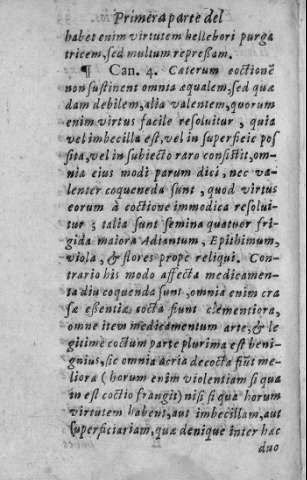 Primera parte del
habet enim virtutem hellebori purga
tricem, sed multum repreßam.
¶ Can. 4. Caterum eoctionē
non sustinent omnia æqualem, sed quæ
dam debilem, alia valentem, quorum
enim virtus facile resoluitur, quia
vel imbecilla est, vel in superficie pos
sita, vel in subiecto raro consistit, om-
nia eius modi parum dici, nec va-
lenter coqueneda sunt, quod virtus
eorum à coctione immodica resolui-
tur; talia sunt semina quatuor fri-
gida maiora Adiantum, Epithimum,
viola, & flores propè reliqui. Con-
trario his modo affecta medicamen-
ta diu coquenda sunt, omnia enim cra
sæ eßentiæ cocta fiunt clementiora,
omne item medicamentum arte, & le
gitime coctum parte plurima est beni-
gnius, sic omnia acria decocta fiūt me-
liora (horum enim violentiam si qua
in est coctio frangit) nisi si qua horum
virtutem habent, aut imbecillam, aut
superficiariam, quæ denique inter hæc
duo